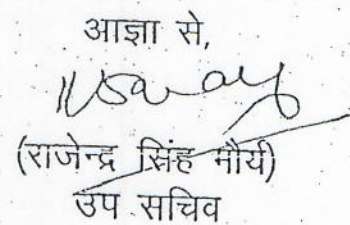 आज्ञा से,
(राजेन्द्र सिंह मौर्य)
उप सचिव